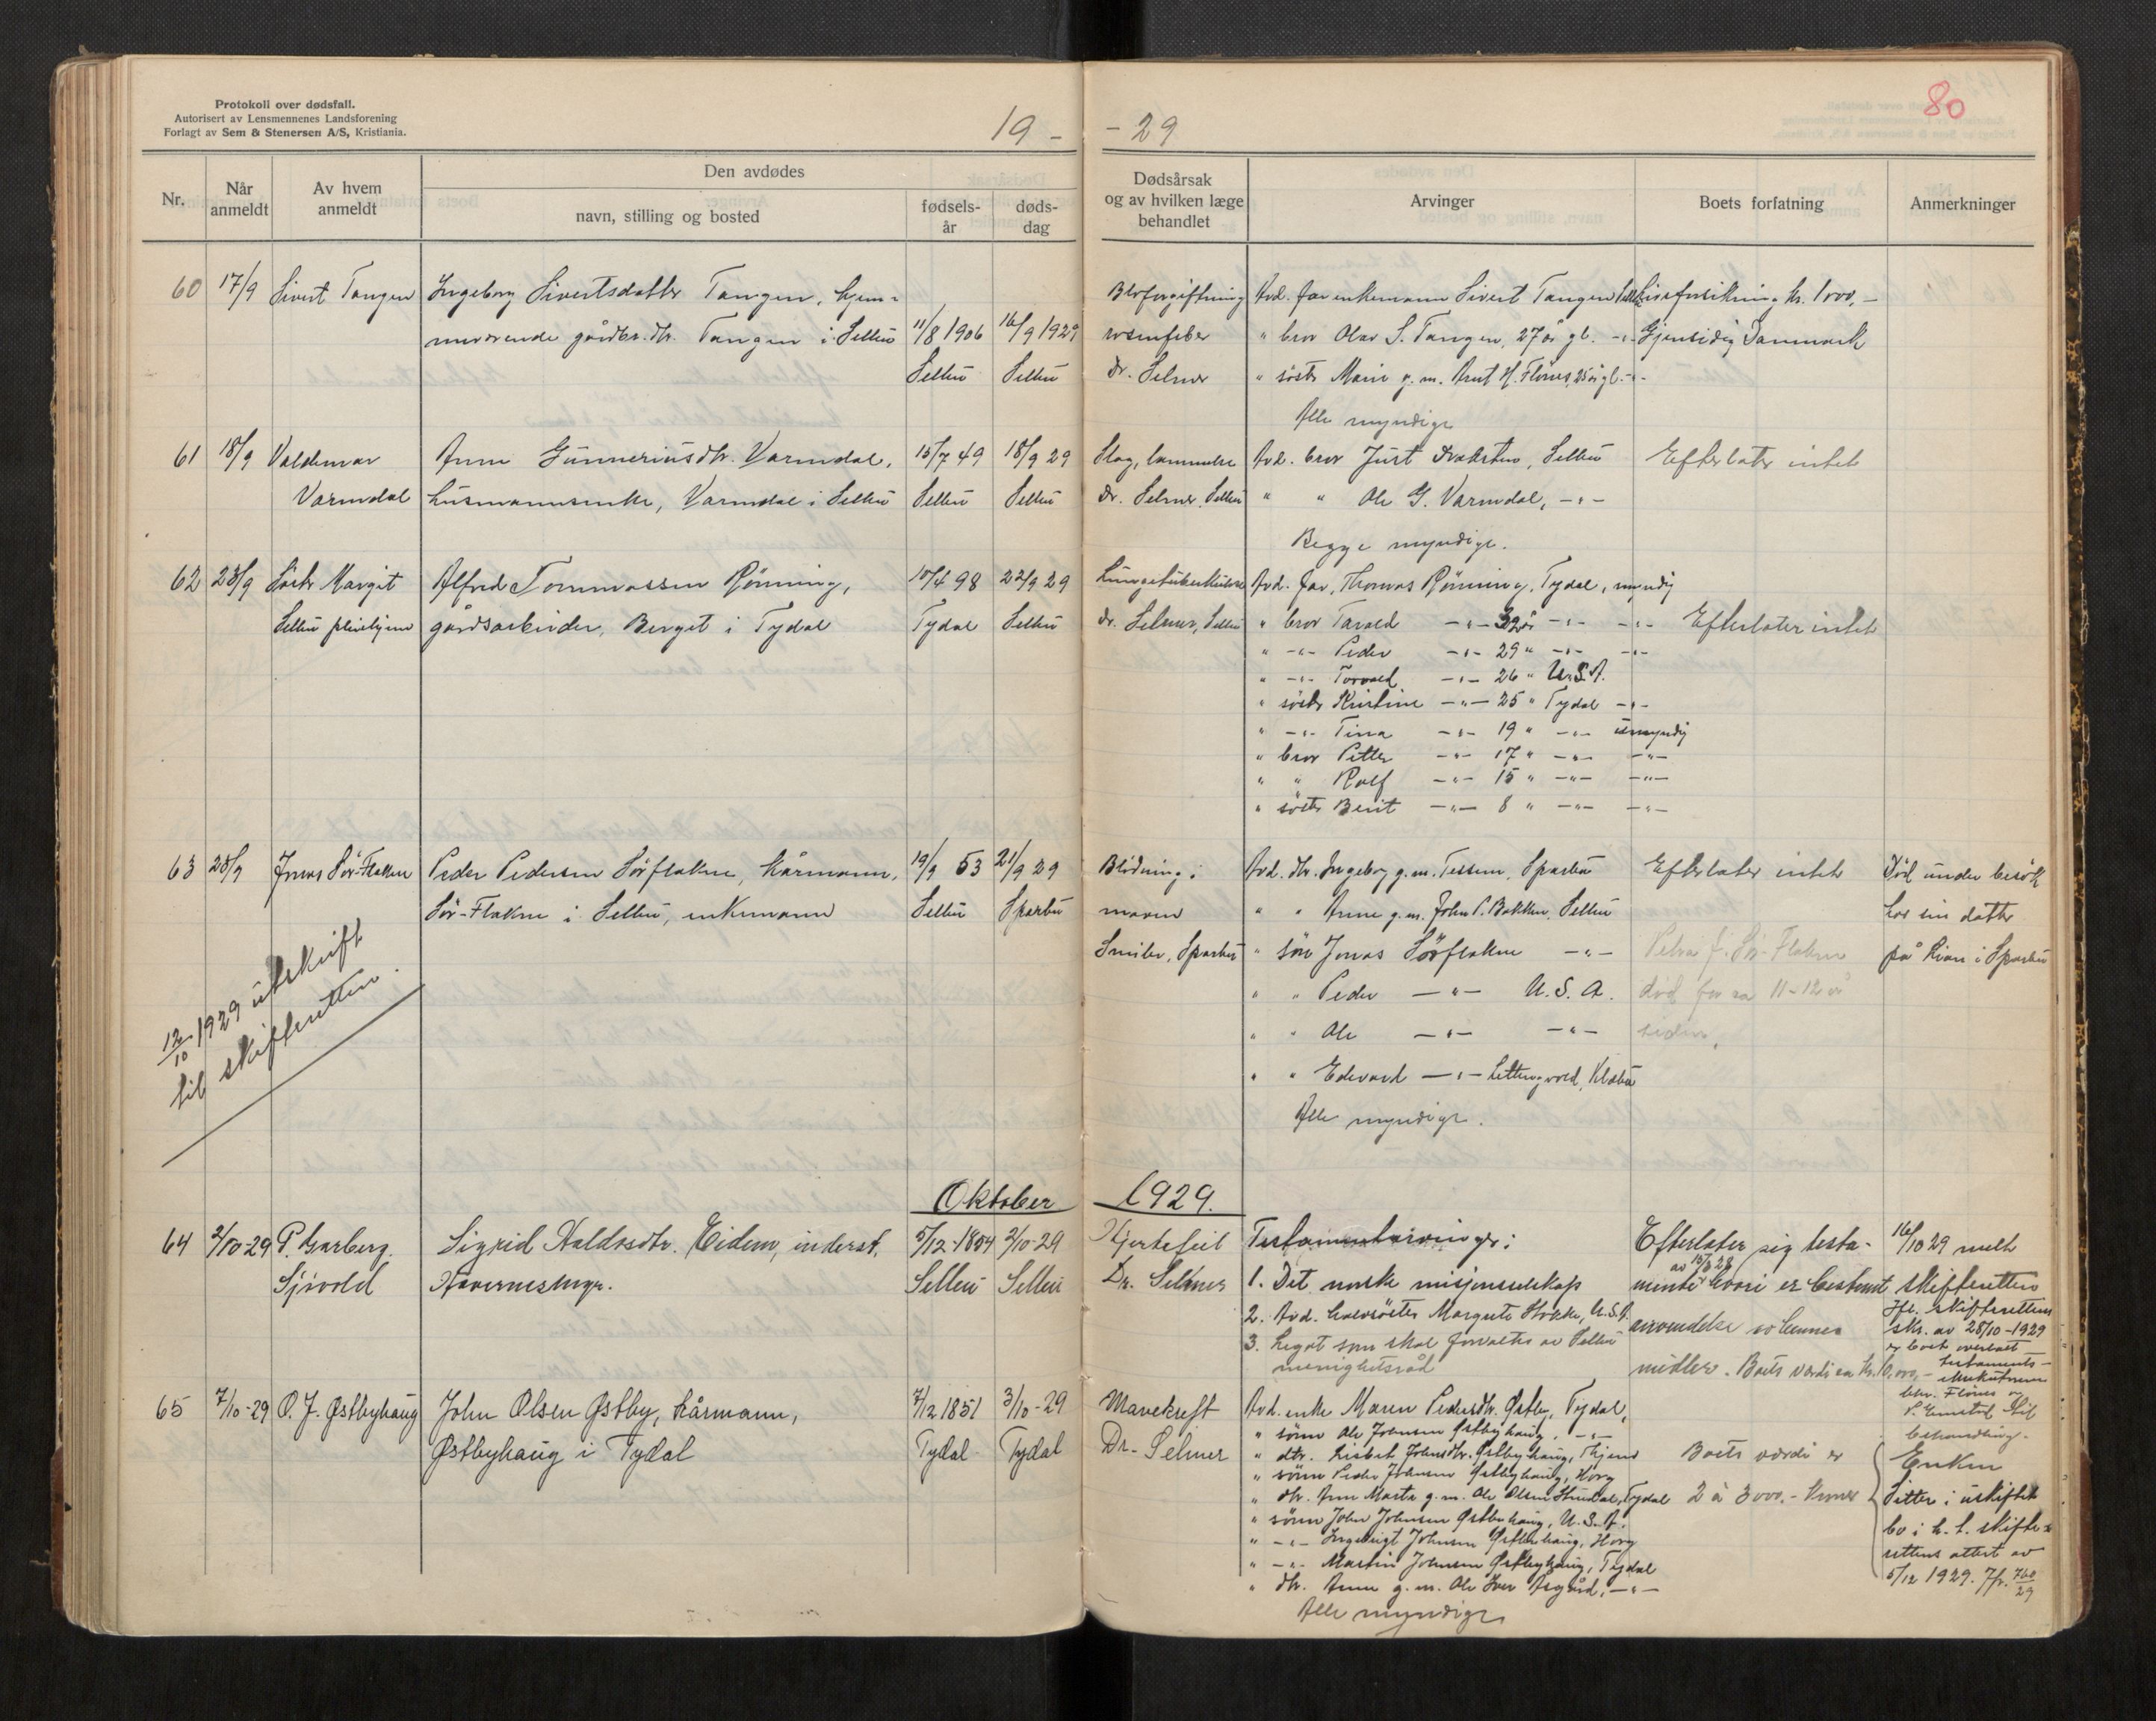 Protokoll over dødsfall.
Autorisert av Lensmennenes Landsforening
Forlagt av Sem & Stenersen A/S, Kristiania.
19 - - 29
80
Nr.
Når anmeldt
Av hvem anmeldt
Den avdødes
navn, stilling og bosted
fødsels-år
døds-dag
Dødsårsak og av hvilken læge behandlet
Arvinger
Boets forfatning
Anmerkninger
60 17/9 Sivert Tangen Ingeborg Sivertsdatter Tangen, hjem-
meværende gårdbr.dtr. Tangen i Selbu 11/8 1906 16/9 1929
Selbu Selbu
Blodforgiftning
rosenfeber
dr. Selmer
Avd. far enkemann Sivert Tangen Selbu
" bror Olav S. Tangen, 27 år gl. -"-
" søster Marie g.m. Arnt H. Flönes, 25 år gl. -"-
Alle myndige
Livsforsikring kr. 1000,-
Gjensidig Danmark
61 18/9 Valdemar Anne Gunneriusdtr. Varmdal, 15/7 49 18/9 29
Varmdal husmannsenke, Varmdal i Selbu Selbu Selbu
Slag, lammelse
dr. Selmer, Selbu
Avd. bror Just Draksten, Selbu
" " Ole G. Varmdal, -"-
Begge myndige.
Efterlater intet
62 23/9 Søster Margit Alfred Tommassen Rönning, 10/4 98 22/9 29
Selbu pleiehjem gårdsarbeider, Berget i Tydal Tydal Selbu
Lungetuberkulose
dr. Selmer, Selbu
Avd. far, Thomas Rönning, Tydal, myndig
" bror Tarald -"- 32 år -"- -"-
" -"- Peder -"- 29 " -"- -"-
" -"- Torvald -"- 26 " U.S.A.
" søster Kristine -"- 25 " Tydal -"-
" -"- Tina -"- 19 " -"- umyndig
" bror Petter -"- 17 " -"- -"-
" " Rolf -"- 15 " -"- -"-
" søster Berit -"- 8 " -"- -"-
Efterlater intet
63 23/9 Jonas Sör-Flaken Peder Pedersen Sörflakne, kårmann, 19/9 53 21/9 29
Sör-Flakne i Selbu, enkemann Selbu Sparbu
12/10 1929 utskrift
til skifteretten.
Blödning i
maven
Sparbu
Avd. dtr. Ingeborg g.m. Tessem, Sparbu
" " Anne g.m. John P. Bakken, Selbu
" sön Jonas Sörflakne -"-
" " Peder -"- U.S.A.
" " Ole -"- -"-
" " Edvard -"- Klæbu
Alle myndige.
Efterlater intet
Petra f. Sör-Flakne
död for ca 11-12 år
siden.
Död under besök
hos sin datter
på Lian i Sparbu
Oktober 1929.
64 2/10-29 P. Garberg. Sigrid Haldosdtr. Eidem, inderst, 5/12-1854 2/10-29
Sjövold Havernesmyr. Selbu Selbu
Hjertefeil
Dr. Selmer
Testamentarvinger:
1. Det norske misjonsselskap
2. Avd. halvsöster Margrete Stokke, U.S.A.
3. Legat som skal forvaltes av Selbu
menighetsråd
Efterlater sig testa-
mente hvori er bestemt
anvendelse av hennes
midler. Boets verdi ca kr. 10,000,-
16/10 29 meldt
skifteretten
Ifl. skifterettens
skr. av 28/10-1929
er boet overlatt
testaments-
eksekutorene
Flönes og
til
behandling.
65 7/10-29 O. J. Østbyhaug John Olsen Østby, kårmann, 7/12 1851 3/10-29
Østbyhaug i Tydal Tydal Tydal
Mavekreft
Dr. Selmer
Avd. enke Maren Pedersdtr. Østby, Tydal,
" sönn Ole Johnsen Østbyhaug, -"-
" dtr. Lisbet Johnsdtr. Østbyhaug, Hjem
" sönn Peder Johnsen Østbyhaug, Horg
" dtr. Ane Marta g.m. Ole Olsen Stuedal, Tydal
" sönn John Johnsen Østbyhaug, U.S.A.
" -"- Ingebrigt Johnsen Østbyhaug, Horg
" -"- Martin Johnsen Østbyhaug, Tydal
" dtr. Anne g.m. Ole Iver Asgård, -"-
Alle myndige
Boets verdi er
2 à 3000.- kroner
Enken
sitter i uskiftet
bo i h. t. skifte-
rettens attest av
5/12 1929. Jfr. 760/29